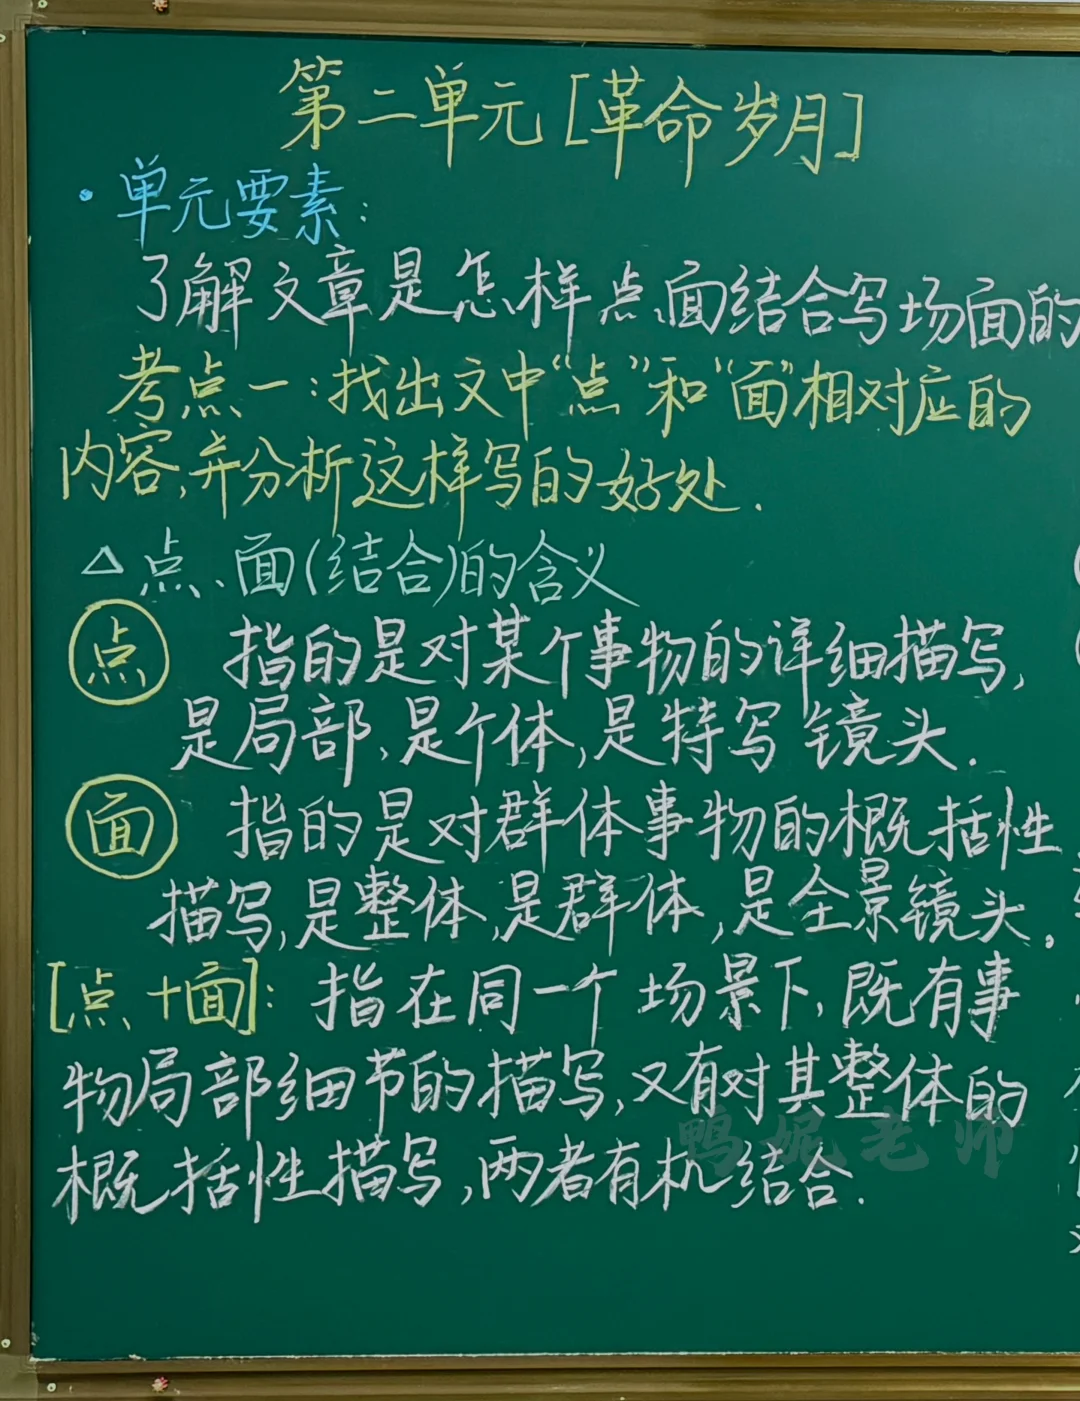 第二单元[革命岁月]
·单元要素:
了解文章是怎样点面结合写场面的
考点一:找出文中“点”和“面”相对应的
内容,并分析这样写的好处.
△点、面(结合)的含义
点 指的是对某个事物的详细描写,
是局部,是个体,是特写镜头.
面 指的是对群体事物的概括性
描写,是整体,是群体,是全景镜头.
[点+面]: 指在同一个场景下,既有事
物局部细节的描写,又有对其整体的
概括性描写,两者有机结合.
鸭妮老师